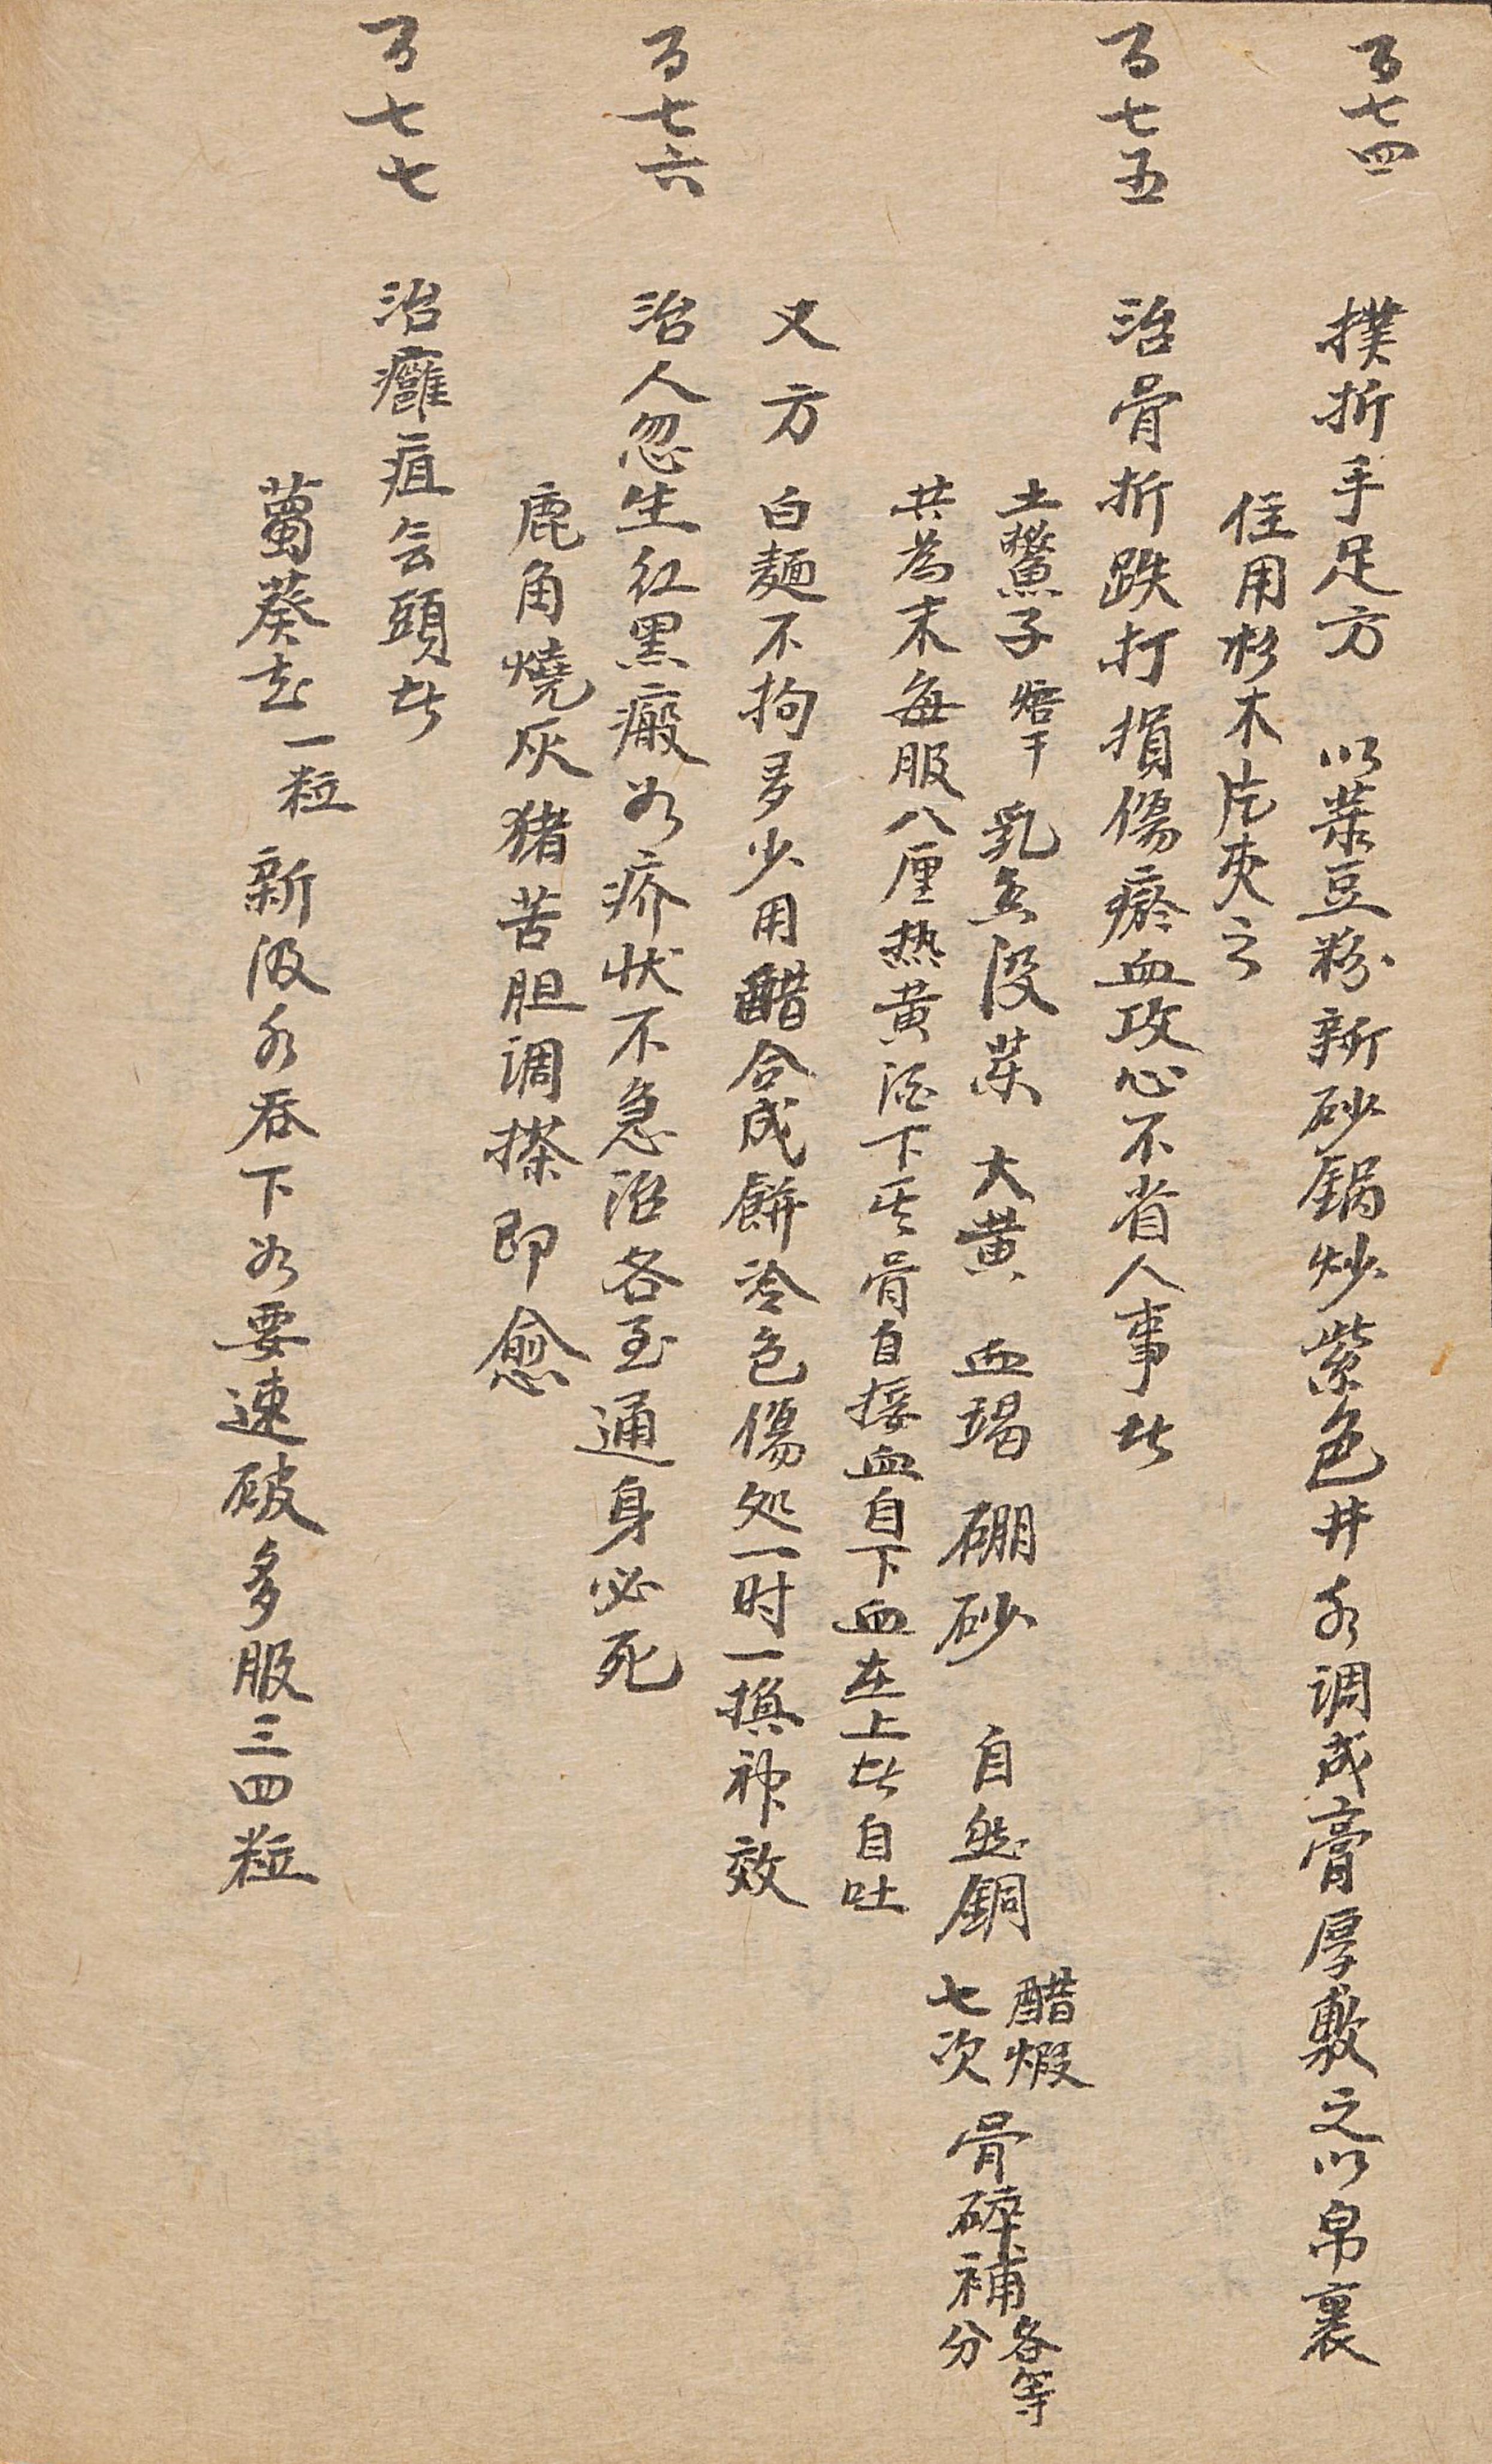 百七四 撲折手足方 以菉豆粉新砂鍋炒紫色井水调成膏厚敷之以帛裹
住用杉木片夾之
百七五 治骨折跌打損傷瘀血攻心不省人事者
土鱉子焙干 乳香没药 大黄 血竭 硼砂 自然銅醋煅七次 骨碎補各等分
共為末每服八厘热黄酒下其骨自接血自下血在上者自吐
又方 白麵不拘多少用醋合成餅冷包傷処一时一換神效
百七六 治人忽生红黑瘢如疥状不急治各至通身必死
鹿角燒灰猪苦胆调搽即愈
百七七 治癰疽无頭者
蔔葵子一粒 新汲水吞下如要速破多服三四粒